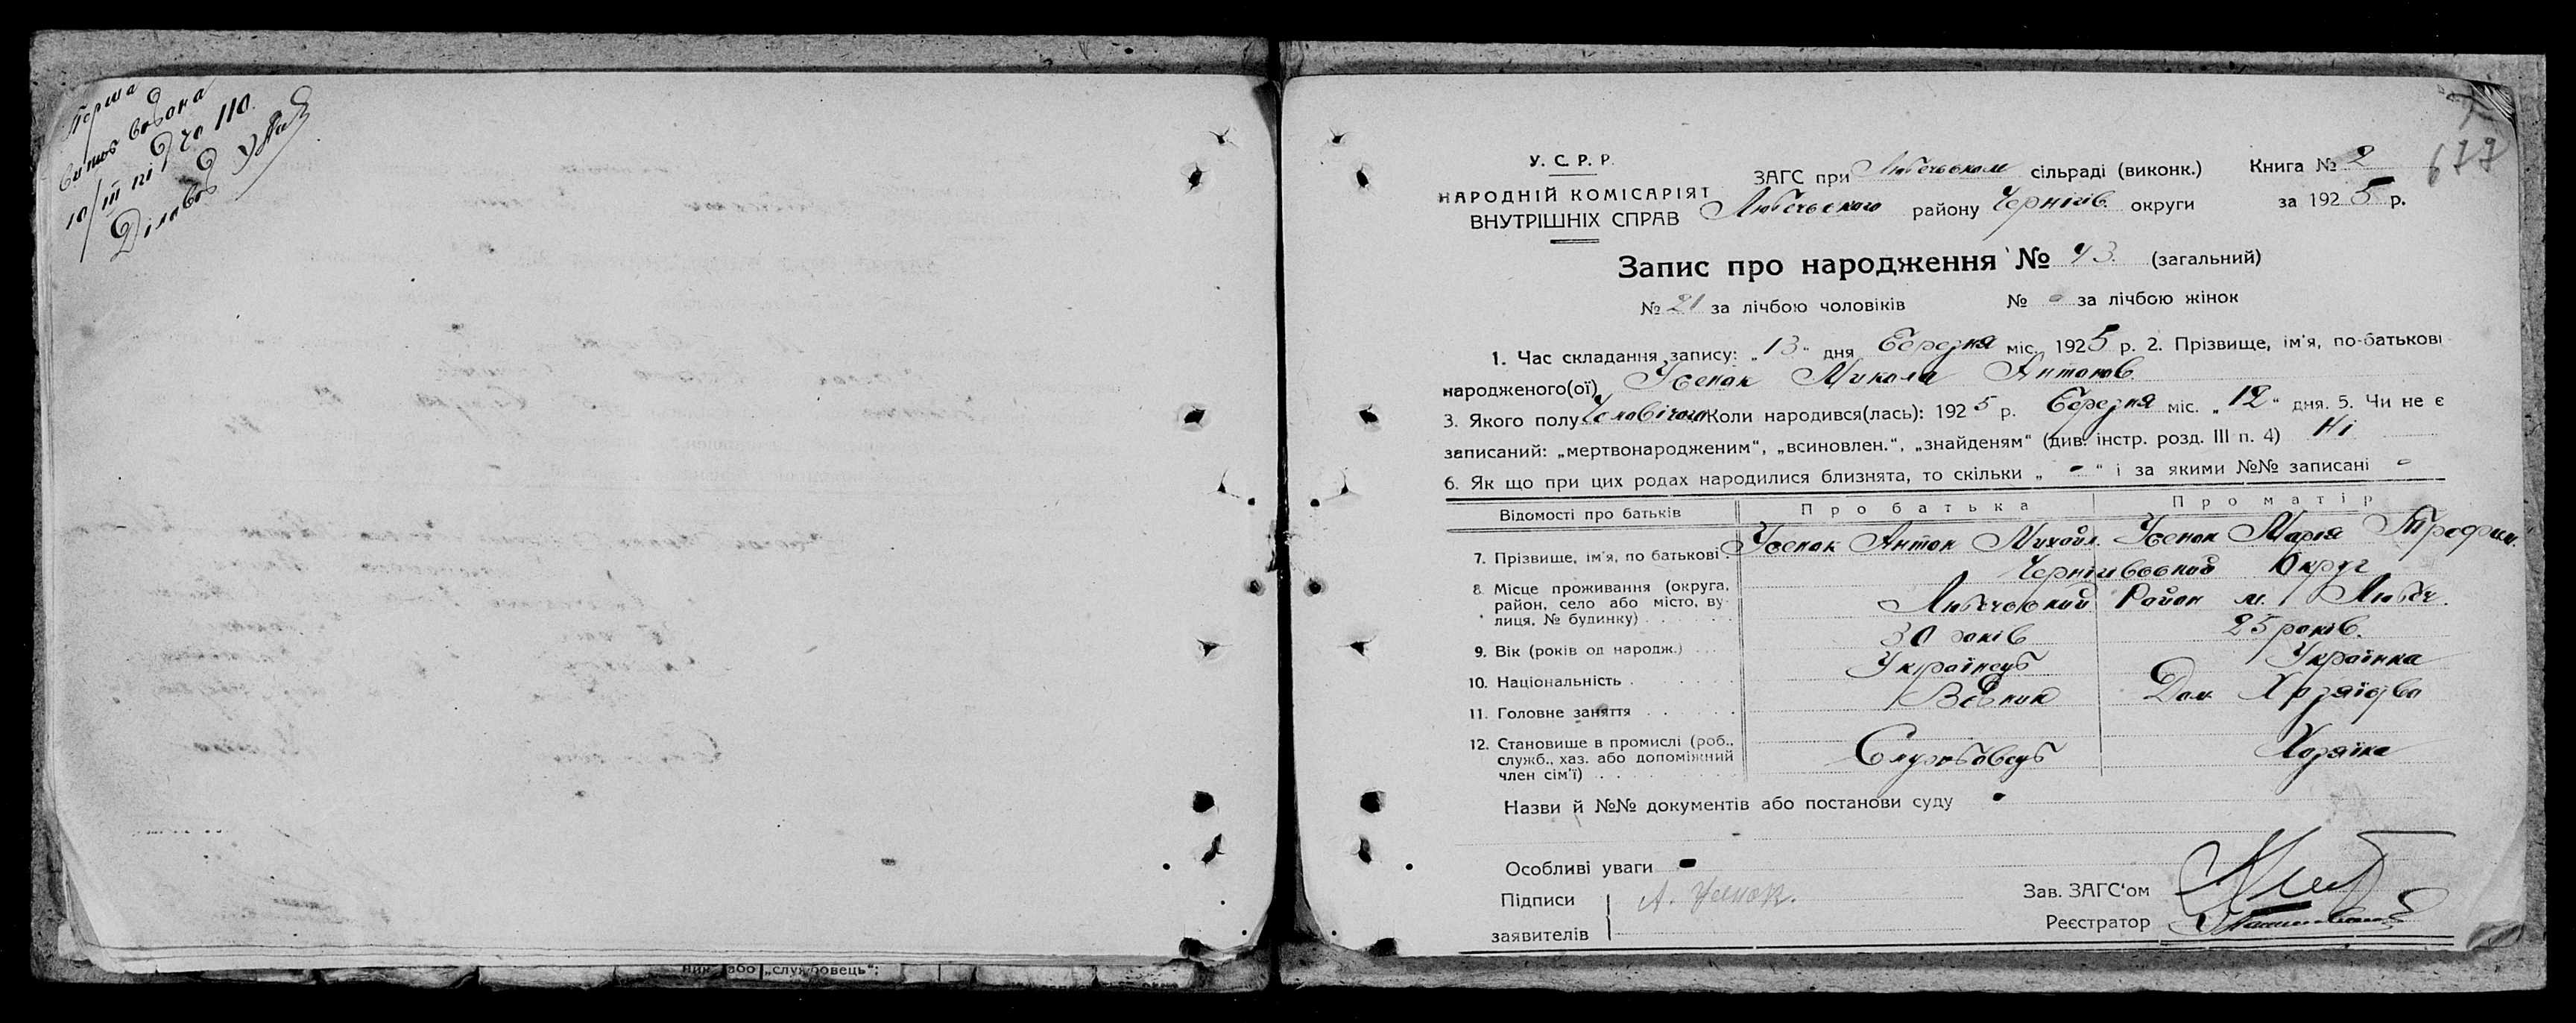 Перша
витяг видана
10/III під ч. 110.
Діловод
677
У. С. Р. Р.
НАРОДНІЙ КОМІСАРІЯТ
ВНУТРІШНІХ СПРАВ
ЗАГС при Любечьском сільраді (виконк.) Книга № 2
Любечьского району Чернігів. округи за 1925 р.
Запис про народження № 43. (загальний)
№ 21 за лічбою чоловіків № - за лічбою жінок
1. Час складання запису: „13“ дня Березня міс. 1925 р. 2. Прізвище, ім'я, по-батькові
народженого(ої) Усенок Микола Антонов.
3. Якого полу Чоловічого Коли народився(лась): 1925 р. Березня міс. „12“ дня. 5. Чи не є
записаний: „мертвонародженим“, „всиновлен.“, „знайденям“ (див. інстр. розд. III п. 4) Ні
6. Як що при цих родах народилися близнята, то скільки „ - “ і за якими №№ записані -
Відомості про батьків Про батька Про матір
7. Прізвище, ім'я, по батькові. Усенок Антон Михайл. Усенок Марія Трофим.
8. Місце проживання (округа, район, село або місто, вулиця, № будинку) Чернігивський Округ
Любечьский Район м. Любеч.
9. Вік (років од народж.) 30 років 25 років.
10. Національність Українець Українка
11. Головне заняття Дом. Хозяїство
12. Становище в промислі (роб., служб., хаз. або допоміжний член сім'ї) Службовець Хозяїка
Назви й №№ документів або постанови суду -
Особливі уваги -
Підписи А. Усенок.
заявителів
Зав. ЗАГС'ом
Реєстратор
ник або „службовець“;